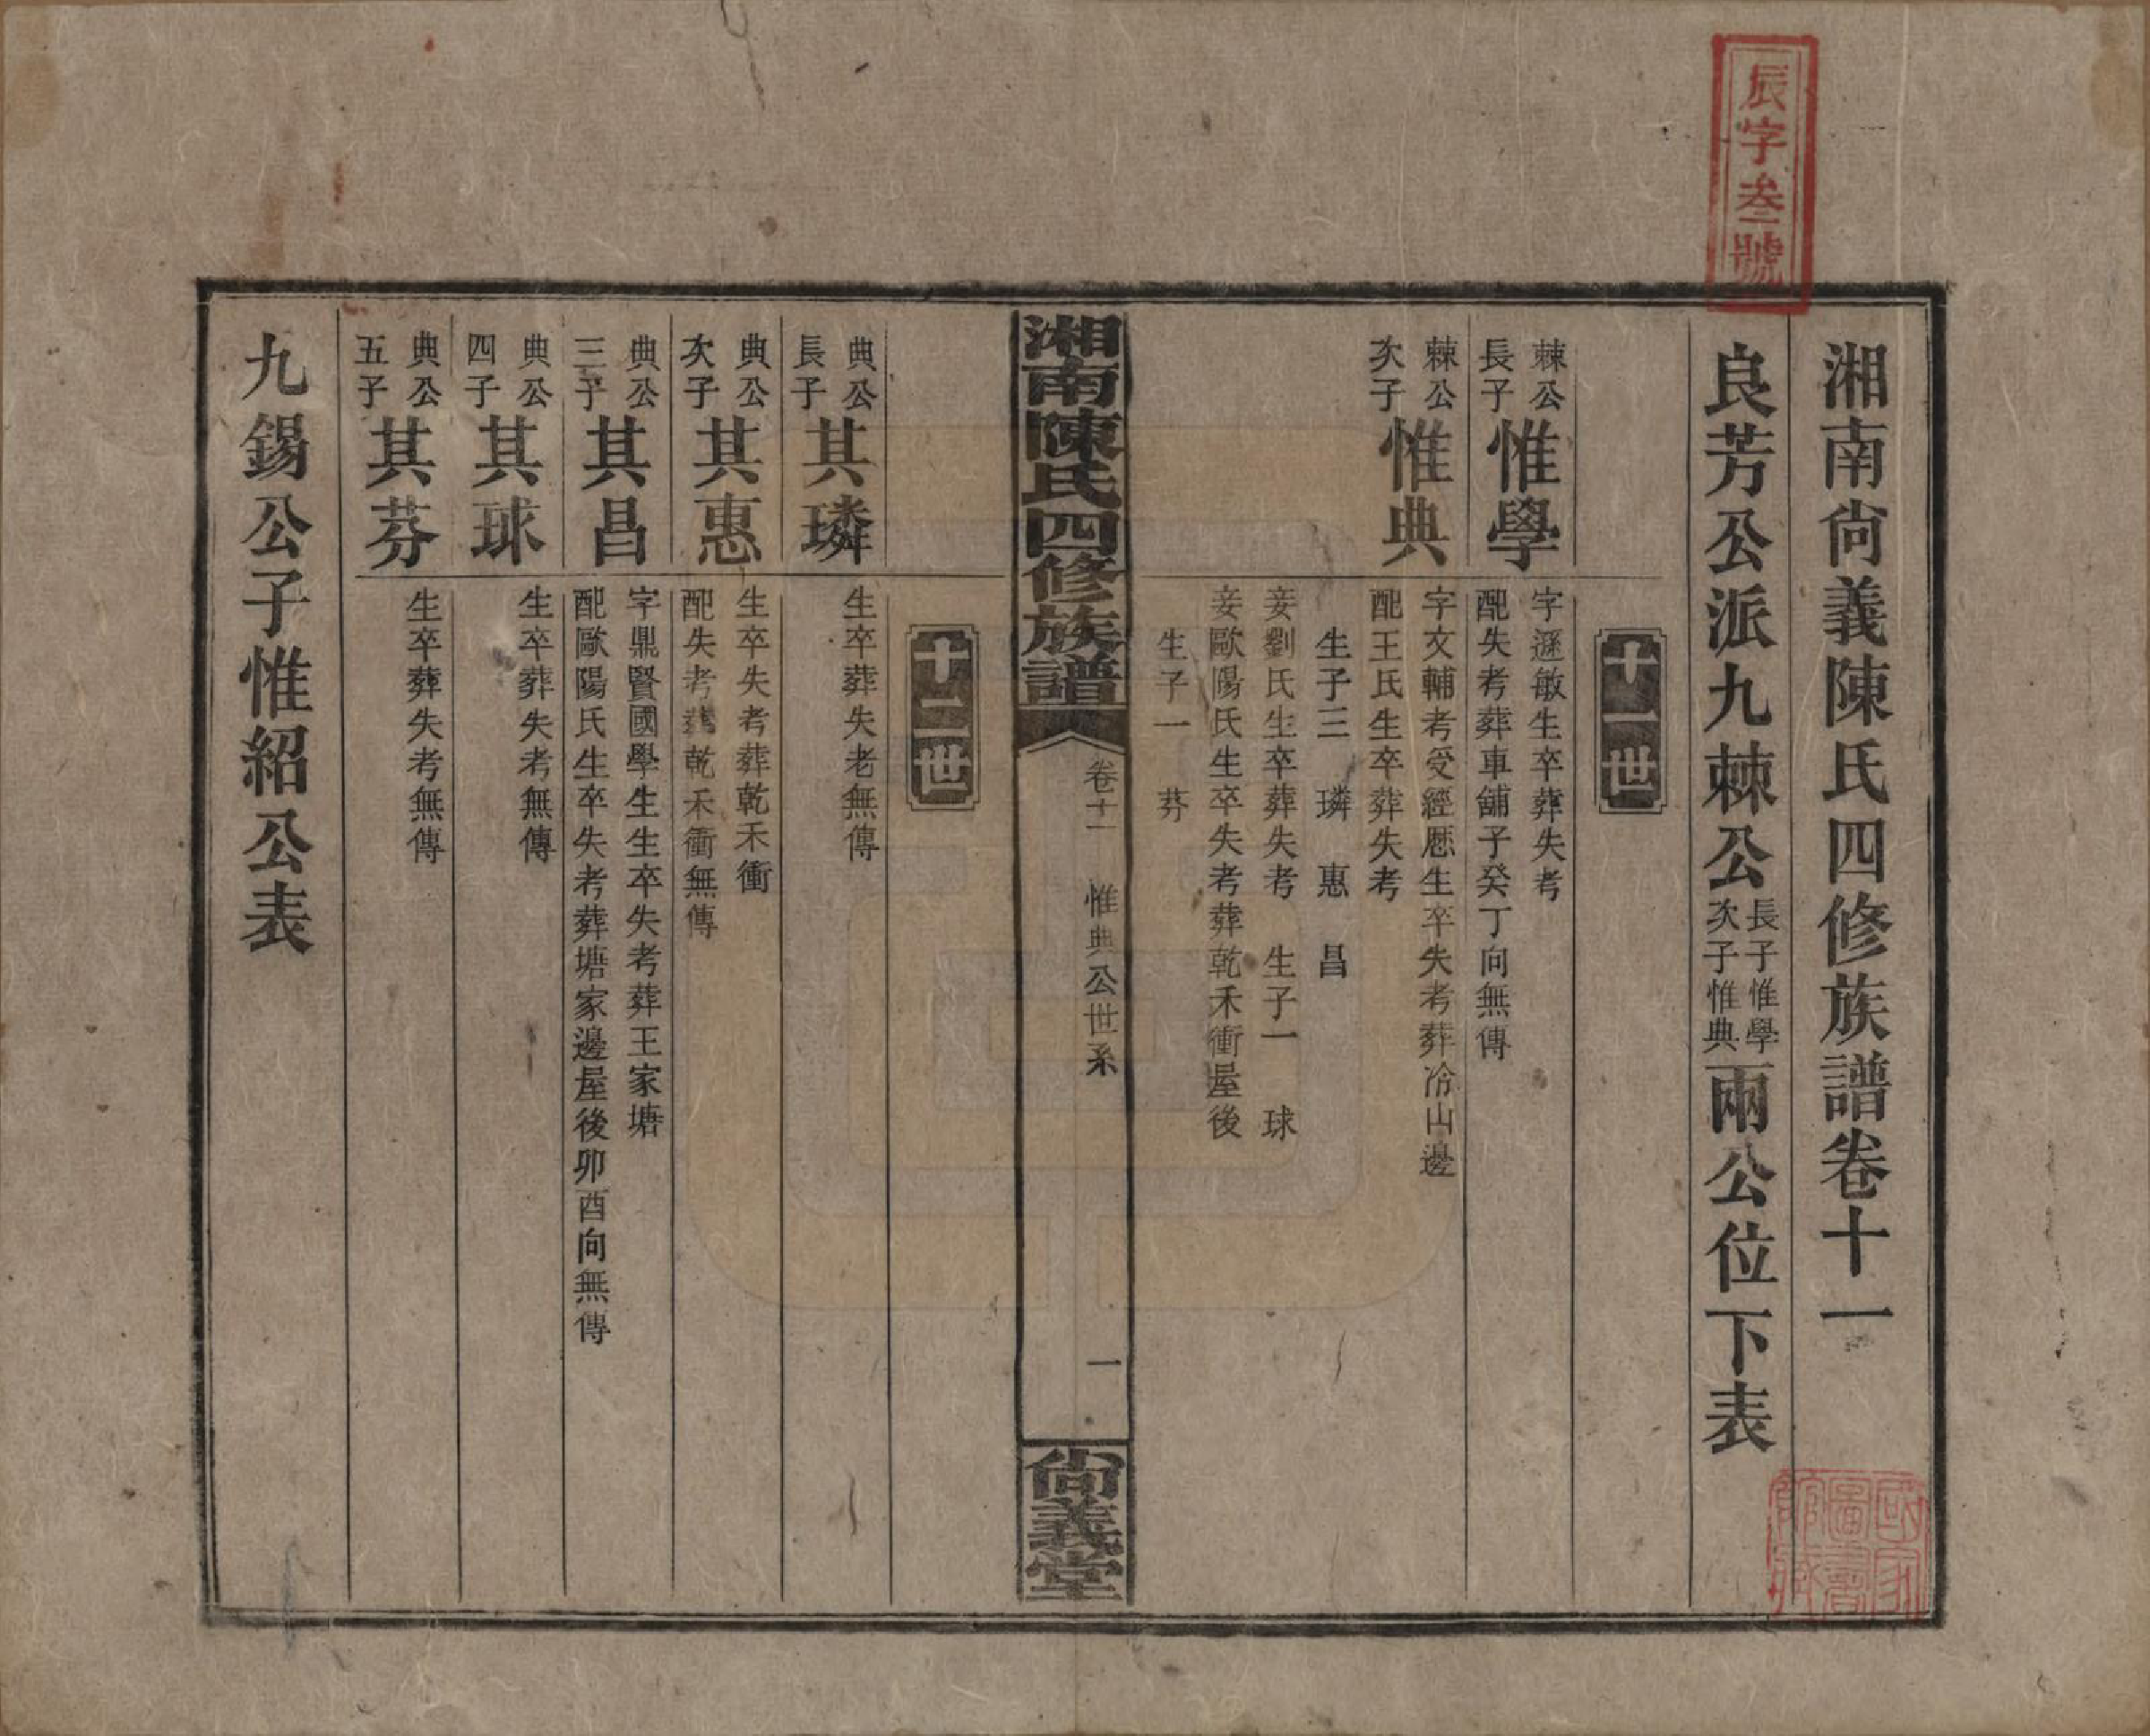 辰字叁號
湘南尙義陳氏四修族譜卷十一
良芳公派九棘公長子惟學次子惟典兩公位下表
十一世
棘公長子惟學
字遜敏生卒葬失考
配失考葬車舖子癸丁向無傳
棘公次子惟典
字文輔考受經歷生卒失考葬冷山邊
配王氏生卒葬失考
生子三 璘 惠 昌
妾劉氏生卒葬失考 生子一 球
妾歐陽氏生卒失考葬乾禾衝屋後
生子一 芬
湘南陳氏四修族譜
卷十一 惟典公世系
一
尙義堂
十二世
典公長子其璘
生卒葬失老無傳
典公次子其惠
生卒失考葬乾禾衝
配失考葬乾禾衝無傳
典公三子其昌
字鼎賢國學生生卒失考葬王家塘
配歐陽氏生卒失考葬塘家邊屋後卯酉向無傳
典公四子其球
生卒葬失考無傳
典公五子其芬
生卒葬失考無傳
九錫公子惟紹公表
國家圖書館藏